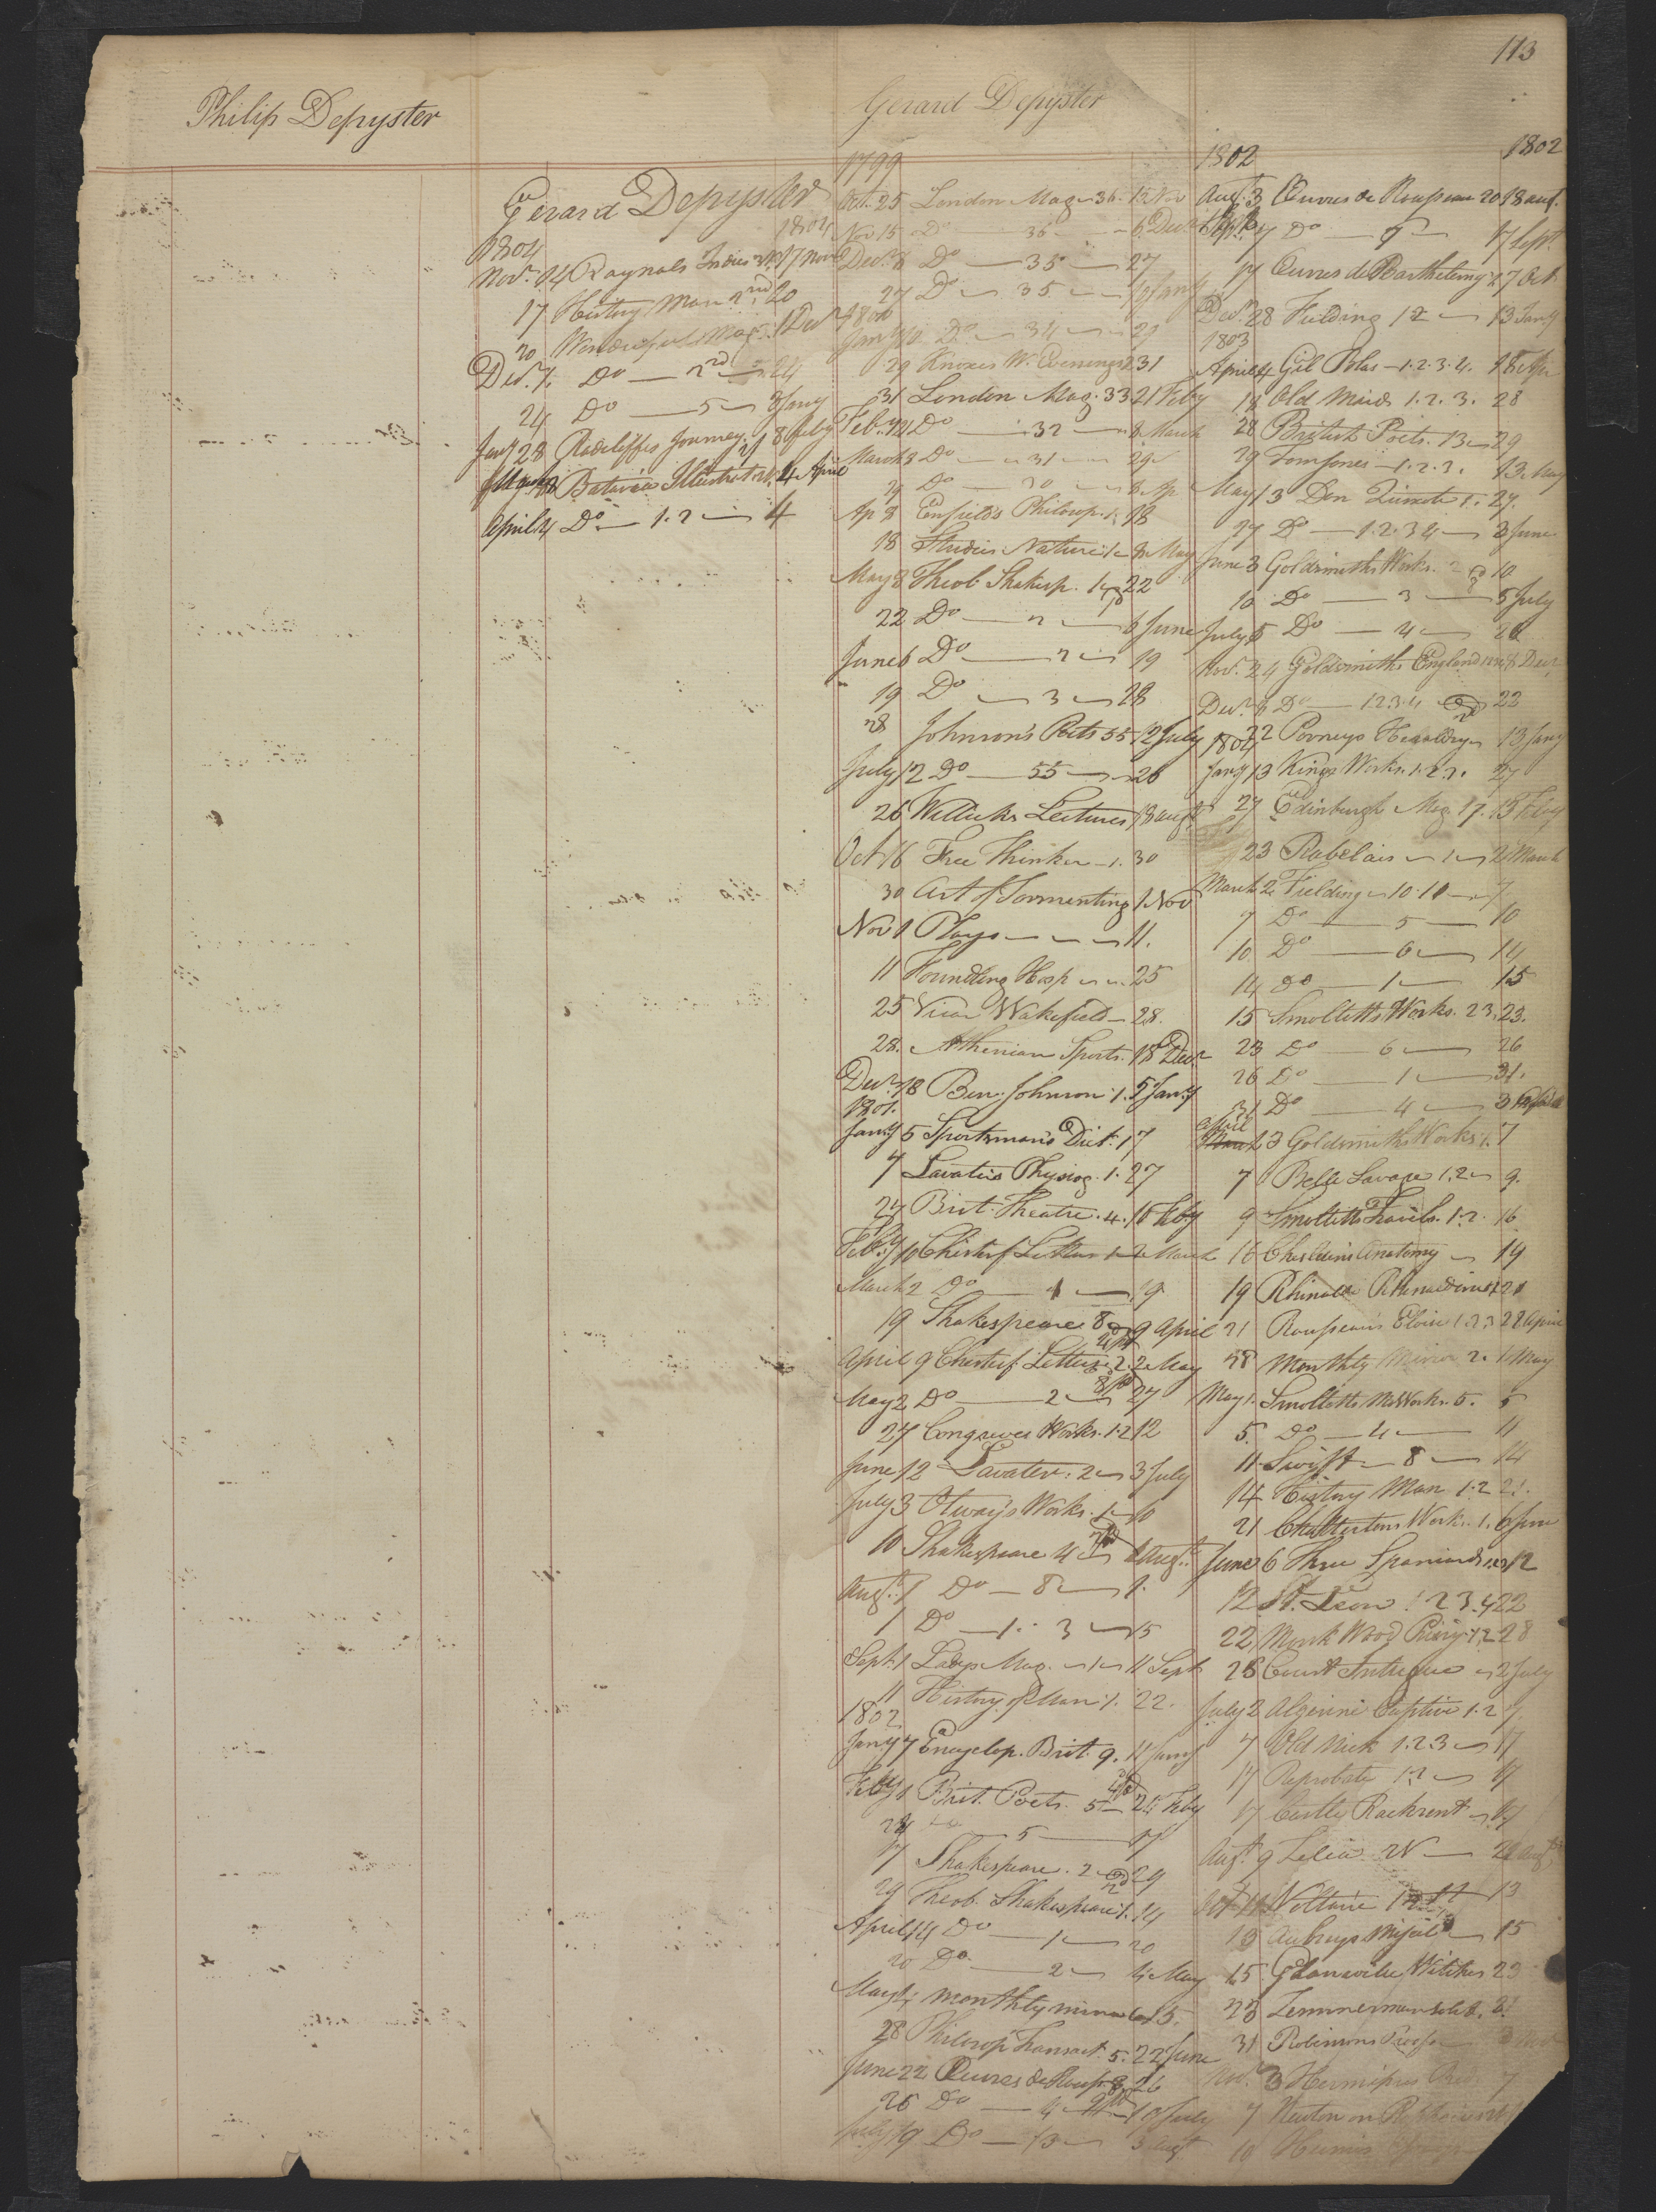 113
Philip Depyster
Gerard Depyster
Gerard Depyster
1804 1804
Novr. 14 Raynals Indies 17 Novr
17 History Man 2nd 20
20 Wonderful Mag. 1 Decr
Decr. 1. Do — 2nd — 24
24 Do — 5 — 3 Jany
Jany 28 Radcliffes Journey 8 July
Batavia Illustrat 4 April
April 4 Do — 1.2 — 4
1799
Oct. 25 London Mag. 36. 15 Nov
Nov 15 Do — 36 — 6 Decr
Decr 6 Do — 35 — 27
27 Do — 35 — Jany
1800
Jany Do — 34 — 29
29 Knoxes W. Evenings 2 31
31 London Mag. 33 21 Feby
Feb. 21 Do — 32 — 8 March
March 8 Do — 31 — 29
29 Do — 30 — 8 Ap
Ap 8 Enfield's Philosop. 1. 18
18 Studies Nature 1 — 8 May
May 8 Theob. Shakesp. 1 — 22
22 Do — 2 — 6 June
June 6 Do — 2 — 19
19 Do — 3 — 28
28 Johnson's Poets 55 — 12 July
July 12 Do — 55 — 26
26 Willichs Lectures 18 augt
Oct 16 Free Thinker — 1. 30
30 Art of Tormenting 1 Nov
Nov 1 Plays — — 11.
11 Foundling Hosp — 25
25 Vicar Wakefield — 28.
28. Athenian Sports. 18 Decr
Decr. 18 Ben. Johnson 1. 5 Jany
1801.
Jany 5 Sportsman's Dict. 1 7
7 Lavaters Physiog. 1. 27
27 Brit. Theatre. 4. 10 Feby
Feby 10 Chesterf. Letters 1 — 2 March
March 2 Do — 1 — 19
19 Shakespeare 8 9 April
April 9 Chesterf. Letters 2. 2 May
May 2 Do — 2 — 27
27 Congreves Works. 1.2 12
June 12 Lavater. 2 — 3 July
July 3 Otway's Works. 1 — 10
10 Shakespeare 4 — 1 Augt.
Augt. 1 Do — 8 — 1.
1 Do — 1. 3 — 15
Sept. 1 Ladys Mag. — 1 — 11 Sept
11 History of Man 1. 22.
1802
Jany 7 Encyclop. Brit. 9. 11 Jany
Feby 1 Brit. Poets. 5 — 24 Feby
24 — 5 — 17
17 Shakespeare. 2 — 29
29 Theob. Shakespeare 1. 14
April 14 Do — 1 — 20
20 Do — 2 — 4 May
May 4 monthly mirror 15.
28 Philosop Transact. 5. 22 June
June 22 Oeuvres de Rouss. 8. 26
26 Do — 4 — 19 July
July 19 Do — 13 — 3 Augt
1802 1802
Augt. 3 Œuvres de Rousseau 20 18 aut.
Sept. 7 Do — 9 — 17 Sept.
17 Euvres de Barthelemy 27 Oct
Decr. 28 Fielding 12 — 13 Jany
1803
April 4 Gil Blas — 1.2.3.4. 18 Apr
18 Old Maids 1.2.3. 28
28 British Poets. 13 — 29
29 Tom Jones — 1.2.3. 13 May
May 13 Don Quixote 1. 27.
27 Do — 1.2.3 4 — 3 June
June 3 Goldsmiths Works. 2 10
10 Do — 3 — 5 July
July 5 Do — 4 — 26
Nov. 24 Goldsmiths England 6 Decr
Decr. 6 Do — 1.2.3.4 22
22 Pornys Heraldry — 13 Jany
1804
Jany 13 Kings Works. 1.2.3. 27
27 Edinburgh Mag. 17. 13 Feby
23 Rabelais — 1 — 2 March
March 2 Fielding — 10.11 — 7
7 Do — 5 — 10
10 Do — 6 — 14
14 Do — 1 — 15
15 Smolletts Works. 2 3. 23.
23 Do — 6 — 26
26 Do — 1 — 31.
31 Do — 4 — 3
April 3 Goldsmiths Works. 1. 7
7 Belle Savage 1.2 — 9.
9 Smolletts Travels. 1.2. 16
16 Cheseldens Anatomy — 19
19 Rhinaldo Rhinaldini 21
21 Rousseau's Eloisa 1.2.3 28 April
28 Monthly Mirror 2. 1 May
May 1. Smolletts Works. 5. 5
5. Do — 4 — 11
11 Swift — 8 — 14
14 History Man 1.2 21.
21 Chattertons Works. 1. 6 June
June 6 Three Spaniards 12
12 St. Leon 1 2 3. 4 22
22 Monk Wood Priory 1.2 28
28 Court Intrigue — 2 July
July 2 Algerine Captive 1.2 7.
7 Old Nick 1.2.3 — 17
17 Reprobate 1.2 — 17
17 Castle Rackrent — 17
Augt. 9 Lelia 2 N — 21 augt
Voltaire 13
13 Aubreys Miscel. — 15
15 Glanville Witches 23
23 Zimmerman Solit. 31
31 Robinsons Proofs
Nov. 3 Hermippus Red 7
7 Newton on
10 Humes